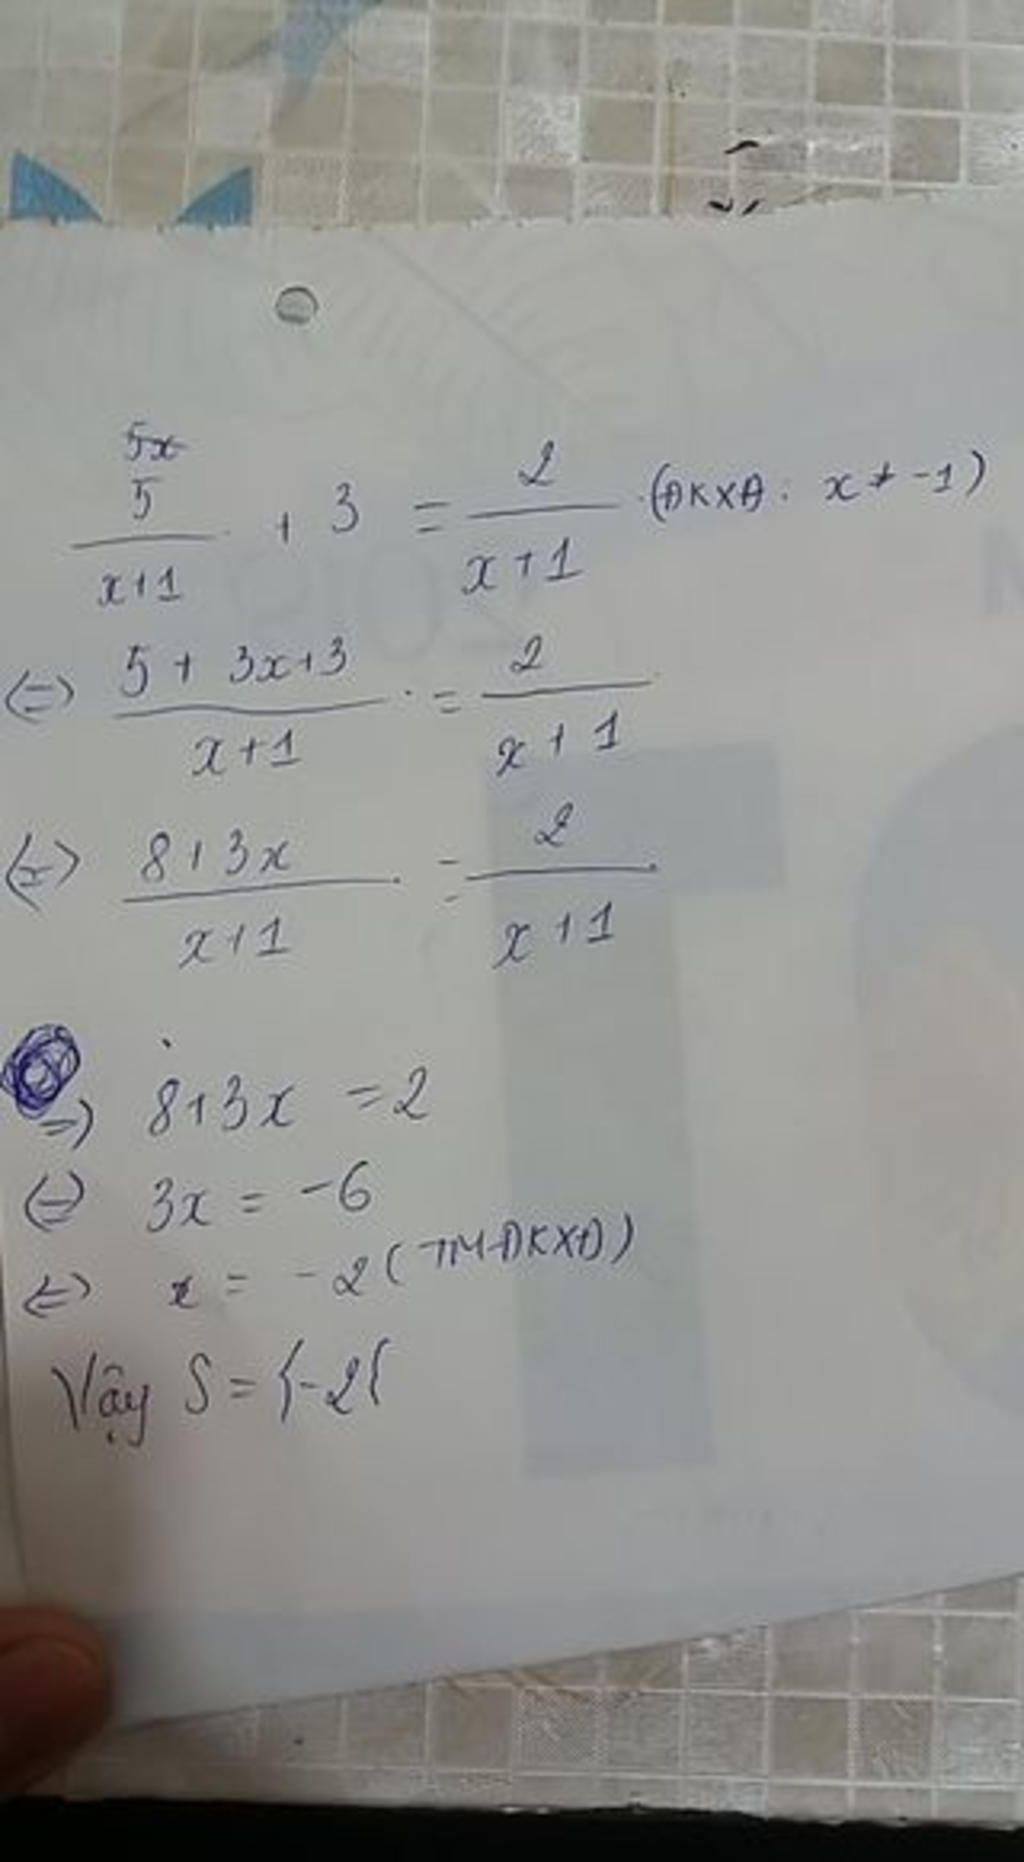 5x
5/(x+1) + 3 = 2/(x+1) (ĐKXĐ: x ≠ -1)
(=) (5 + 3x+3)/(x+1) = 2/(x+1)
(=) (8+3x)/(x+1) = 2/(x+1)
=) 8+3x = 2
(=) 3x = -6
(=) x = -2 (TMĐKXĐ)
Vậy S = {-2{